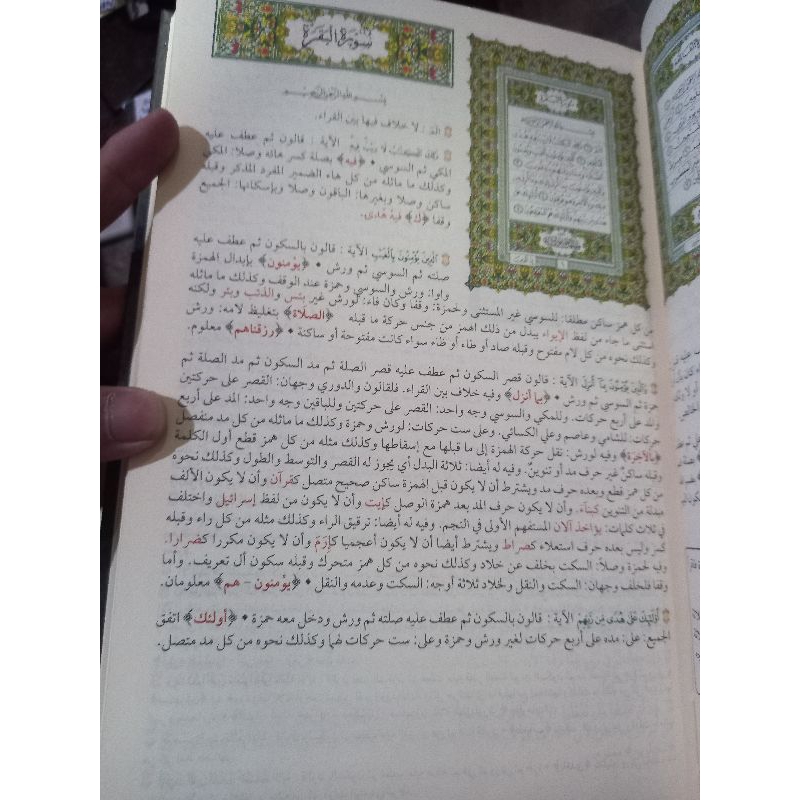 سورة البقرة
بسم الله الرحمن الرحيم
الم : لا خلاف فيها بين القراء.
ذلك الكتاب لا ريب فيه الآية : قالون ثم عطف عليه
المكي ثم السوسي • ﴿فيه﴾ بصلة كسر هائه وصلا: المكي
وكذلك ما ماثله من كل هاء الضمير المفرد المذكر وقبله
ساكن وصلا وبغيرها: الباقون وصلا وبإسكانها: الجميع
وقفا ﴿ك﴾ فيه هدى.
الذين يؤمنون بالغيب الآية : قالون بالسكون ثم عطف عليه
صلته ثم السوسي ثم ورش • ﴿يؤمنون﴾ بإبدال الهمزة
واوا: ورش والسوسي وحمزة عند الوقف وكذلك ما ماثله
من كل همز ساكن مطلقا: للسوسي غير المستثنى ولحمزة: وقفا وكان فاء: لورش غير بئس والذئب وبئر ولكنه
استثنى ما جاء من لفظ الإيواء يبدل من ذلك الهمز من جنس حركة ما قبله ﴿الصلاة﴾ بتغليظ لامه: ورش
وكذلك نحوه من كل لام مفتوح وقبله صاد أو طاء أو ظاء سواء كانت مفتوحة أو ساكنة • ﴿رزقناهم﴾ معلوم.
والذين يؤمنون بما أنزل الآية : قالون قصر السكون ثم عطف عليه قصر الصلة ثم مد السكون ثم مد الصلة ثم
حمزة ثم السوسي ثم ورش • ﴿بما أنزل﴾ وفيه خلاف بين القراء. فلقالون والدوري وجهان: القصر على حركتين
والمد على أربع حركات. وللمكي والسوسي وجه واحد: القصر على حركتين وللباقين وجه واحد: المد على أربع
حركات: للشامي وعاصم وعلي الكسائي. وعلى ست حركات: لورش وحمزة وكذلك ما ماثله من كل مد منفصل
﴿بالآخرة﴾ وفيه لورش: نقل حركة الهمزة إلى ما قبلها مع إسقاطها وكذلك مثله من كل همز قطع أول الكلمة
وقبله ساكن غير حرف مد أو تنوين. وفيه له أيضا: ثلاثة البدل أي يجوز له القصر والتوسط والطول وكذلك نحوه
من كل همز قطع وبعده حرف مد ويشترط أن لا يكون قبل الهمزة ساكن صحيح متصل كقرآن وأن لا يكون الألف
مبدلة من التنوين كبناء. وأن لا يكون حرف المد بعد همزة الوصل كإيت وأن لا يكون من لفظ إسرائيل واختلف
في ثلاث كلمات: يؤاخذ آلان المستفهم الأولى في النجم. وفيه له أيضا: ترقيق الراء وكذلك مثله من كل راء وقبله
كسر وليس بعده حرف استعلاء كصراط ويشترط أيضا أن لا يكون أعجميا كإرم وأن لا يكون مكررا كضرارا.
وفيه لحمزة وصلا: السكت بخلف عن خلاد وكذلك نحوه من كل همز متحرك وقبله سكون أل تعريف. وأما
وقفا فلخلف وجهان: السكت والنقل ولخلاد ثلاثة أوجه: السكت وعدمه والنقل • ﴿يؤمنون - هم﴾ معلومان.
أولئك على هدى من ربهم الآية : قالون بالسكون ثم عطف عليه صلته ثم ورش ودخل معه حمزة • ﴿أولئك﴾ اتفق
الجميع: على: مده على أربع حركات لغير ورش وحمزة وعلى: ست حركات لهما وكذلك نحوه من كل مد متصل.